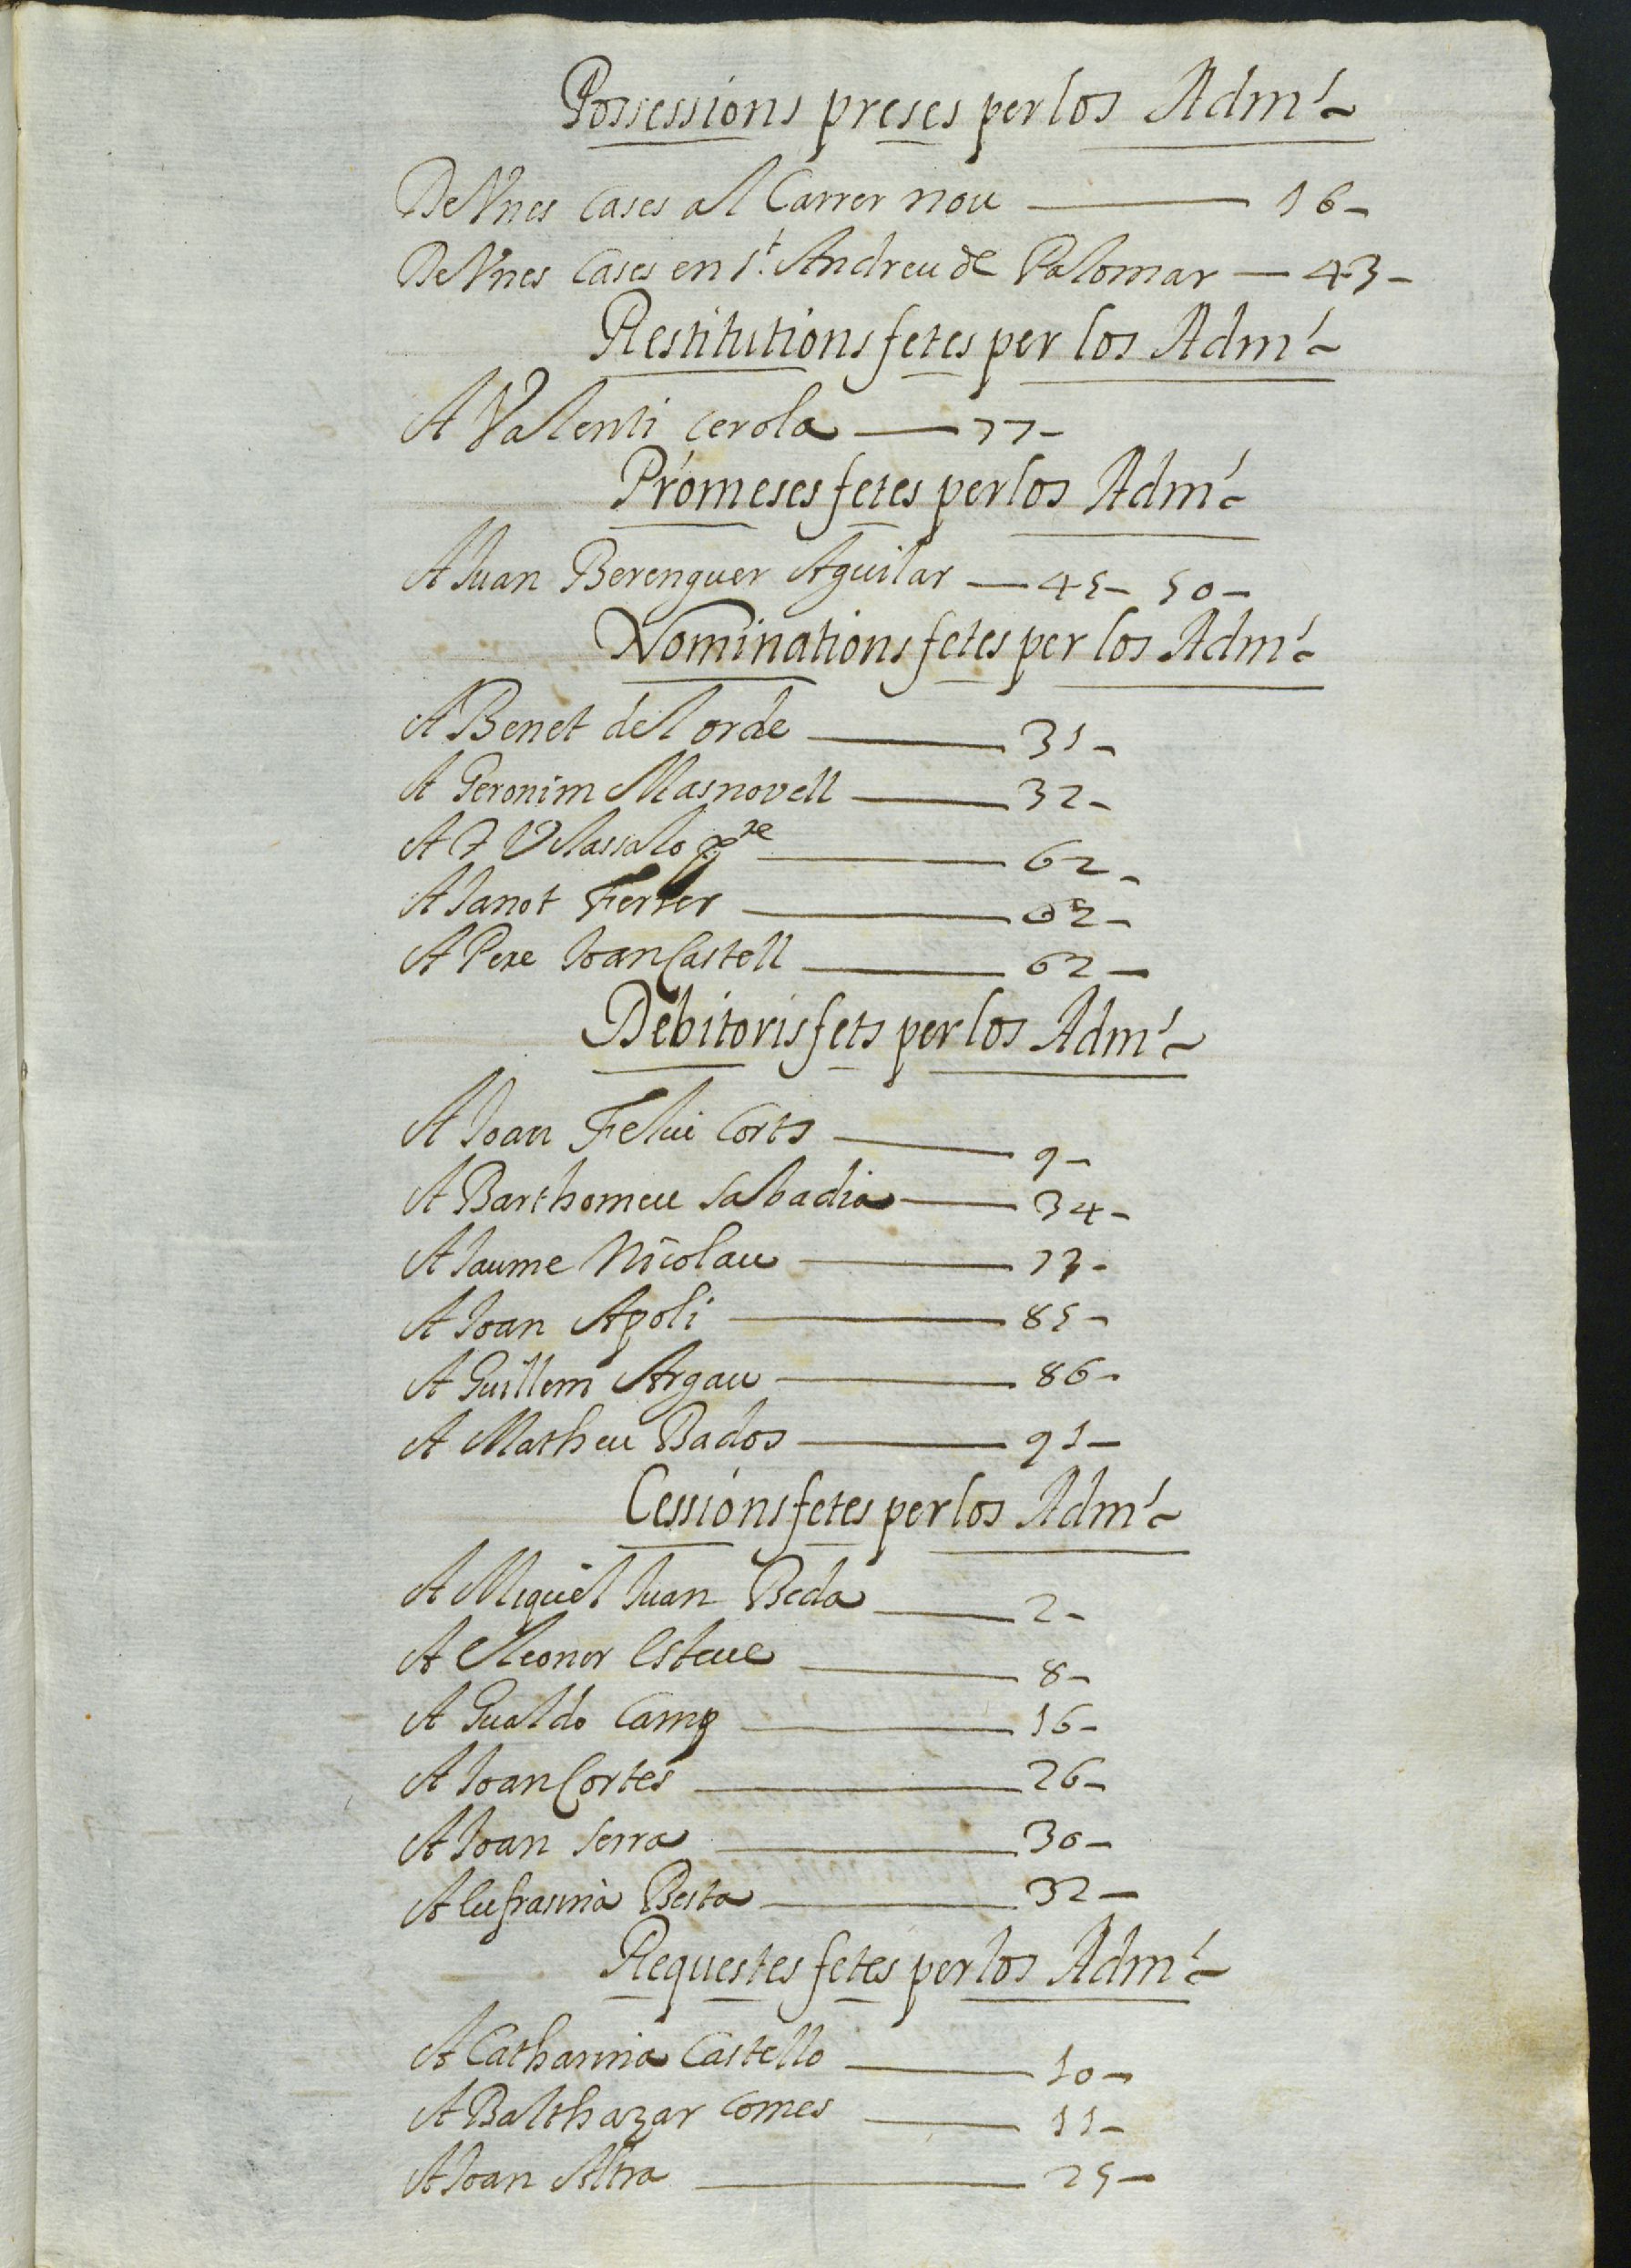 Possessions preses per los Adm.
De Vnes Cases al Carrer nou — 16-
De Vnes Cases en St. Andreu de Palomar — 43-
Restitutions fetes per los Adm.
A Valenti Cerola — 77-
Promeses fetes per los Adm.
A Juan Berenguer Aguilar — 45- 50-
Nominations fetes per los Adm.
A Benet del orde — 31-
A Geronim Masnovell — 32-
A — 62-
A Janot Ferrer — 62-
A Pere Joan Castell — 62-
Debitoris fets per los Adm.
A Joan Feliu Corts — 9-
A Barthomeu Sabadia — 34-
A Jaume Nicolau — 77-
A Joan Apoli — 85-
A Guillem Argau — 86-
A Matheu Bados — 91-
Cessions fetes per los Adm.
A Miquel Juan Beda — 2-
A Eleonor Esteue — 8-
A Gualdo Camp — 16-
A Joan Cortes — 26-
A Joan Serra — 30-
A Eufrasina Besta — 32-
Requestes fetes per los Adm.
A Catharina Castello — 10-
A Balthazar Comes — 11-
A Joan Altra — 25-